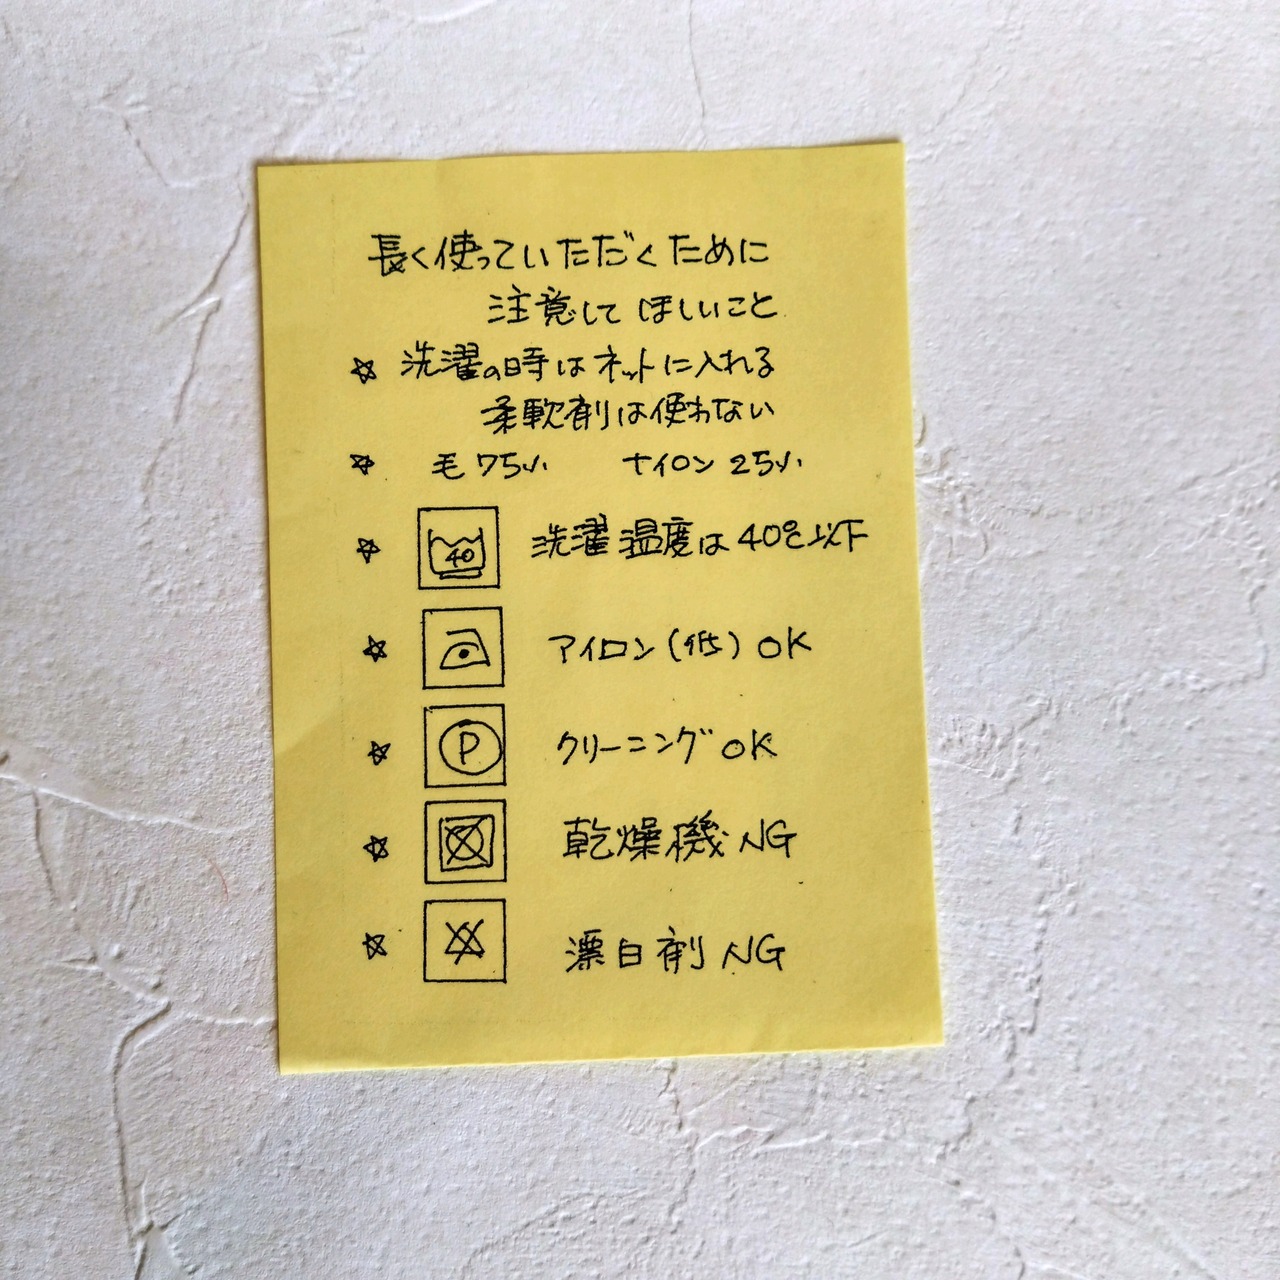 長く使っていただくために
注意してほしいこと
☆ 洗濯の時はネットに入れる
柔軟剤は使わない
☆ 毛75% ナイロン25%
☆ 40 洗濯温度は40℃以下
☆ アイロン(低)OK
☆ P クリーニングOK
☆ 乾燥機NG
☆ 漂白剤NG